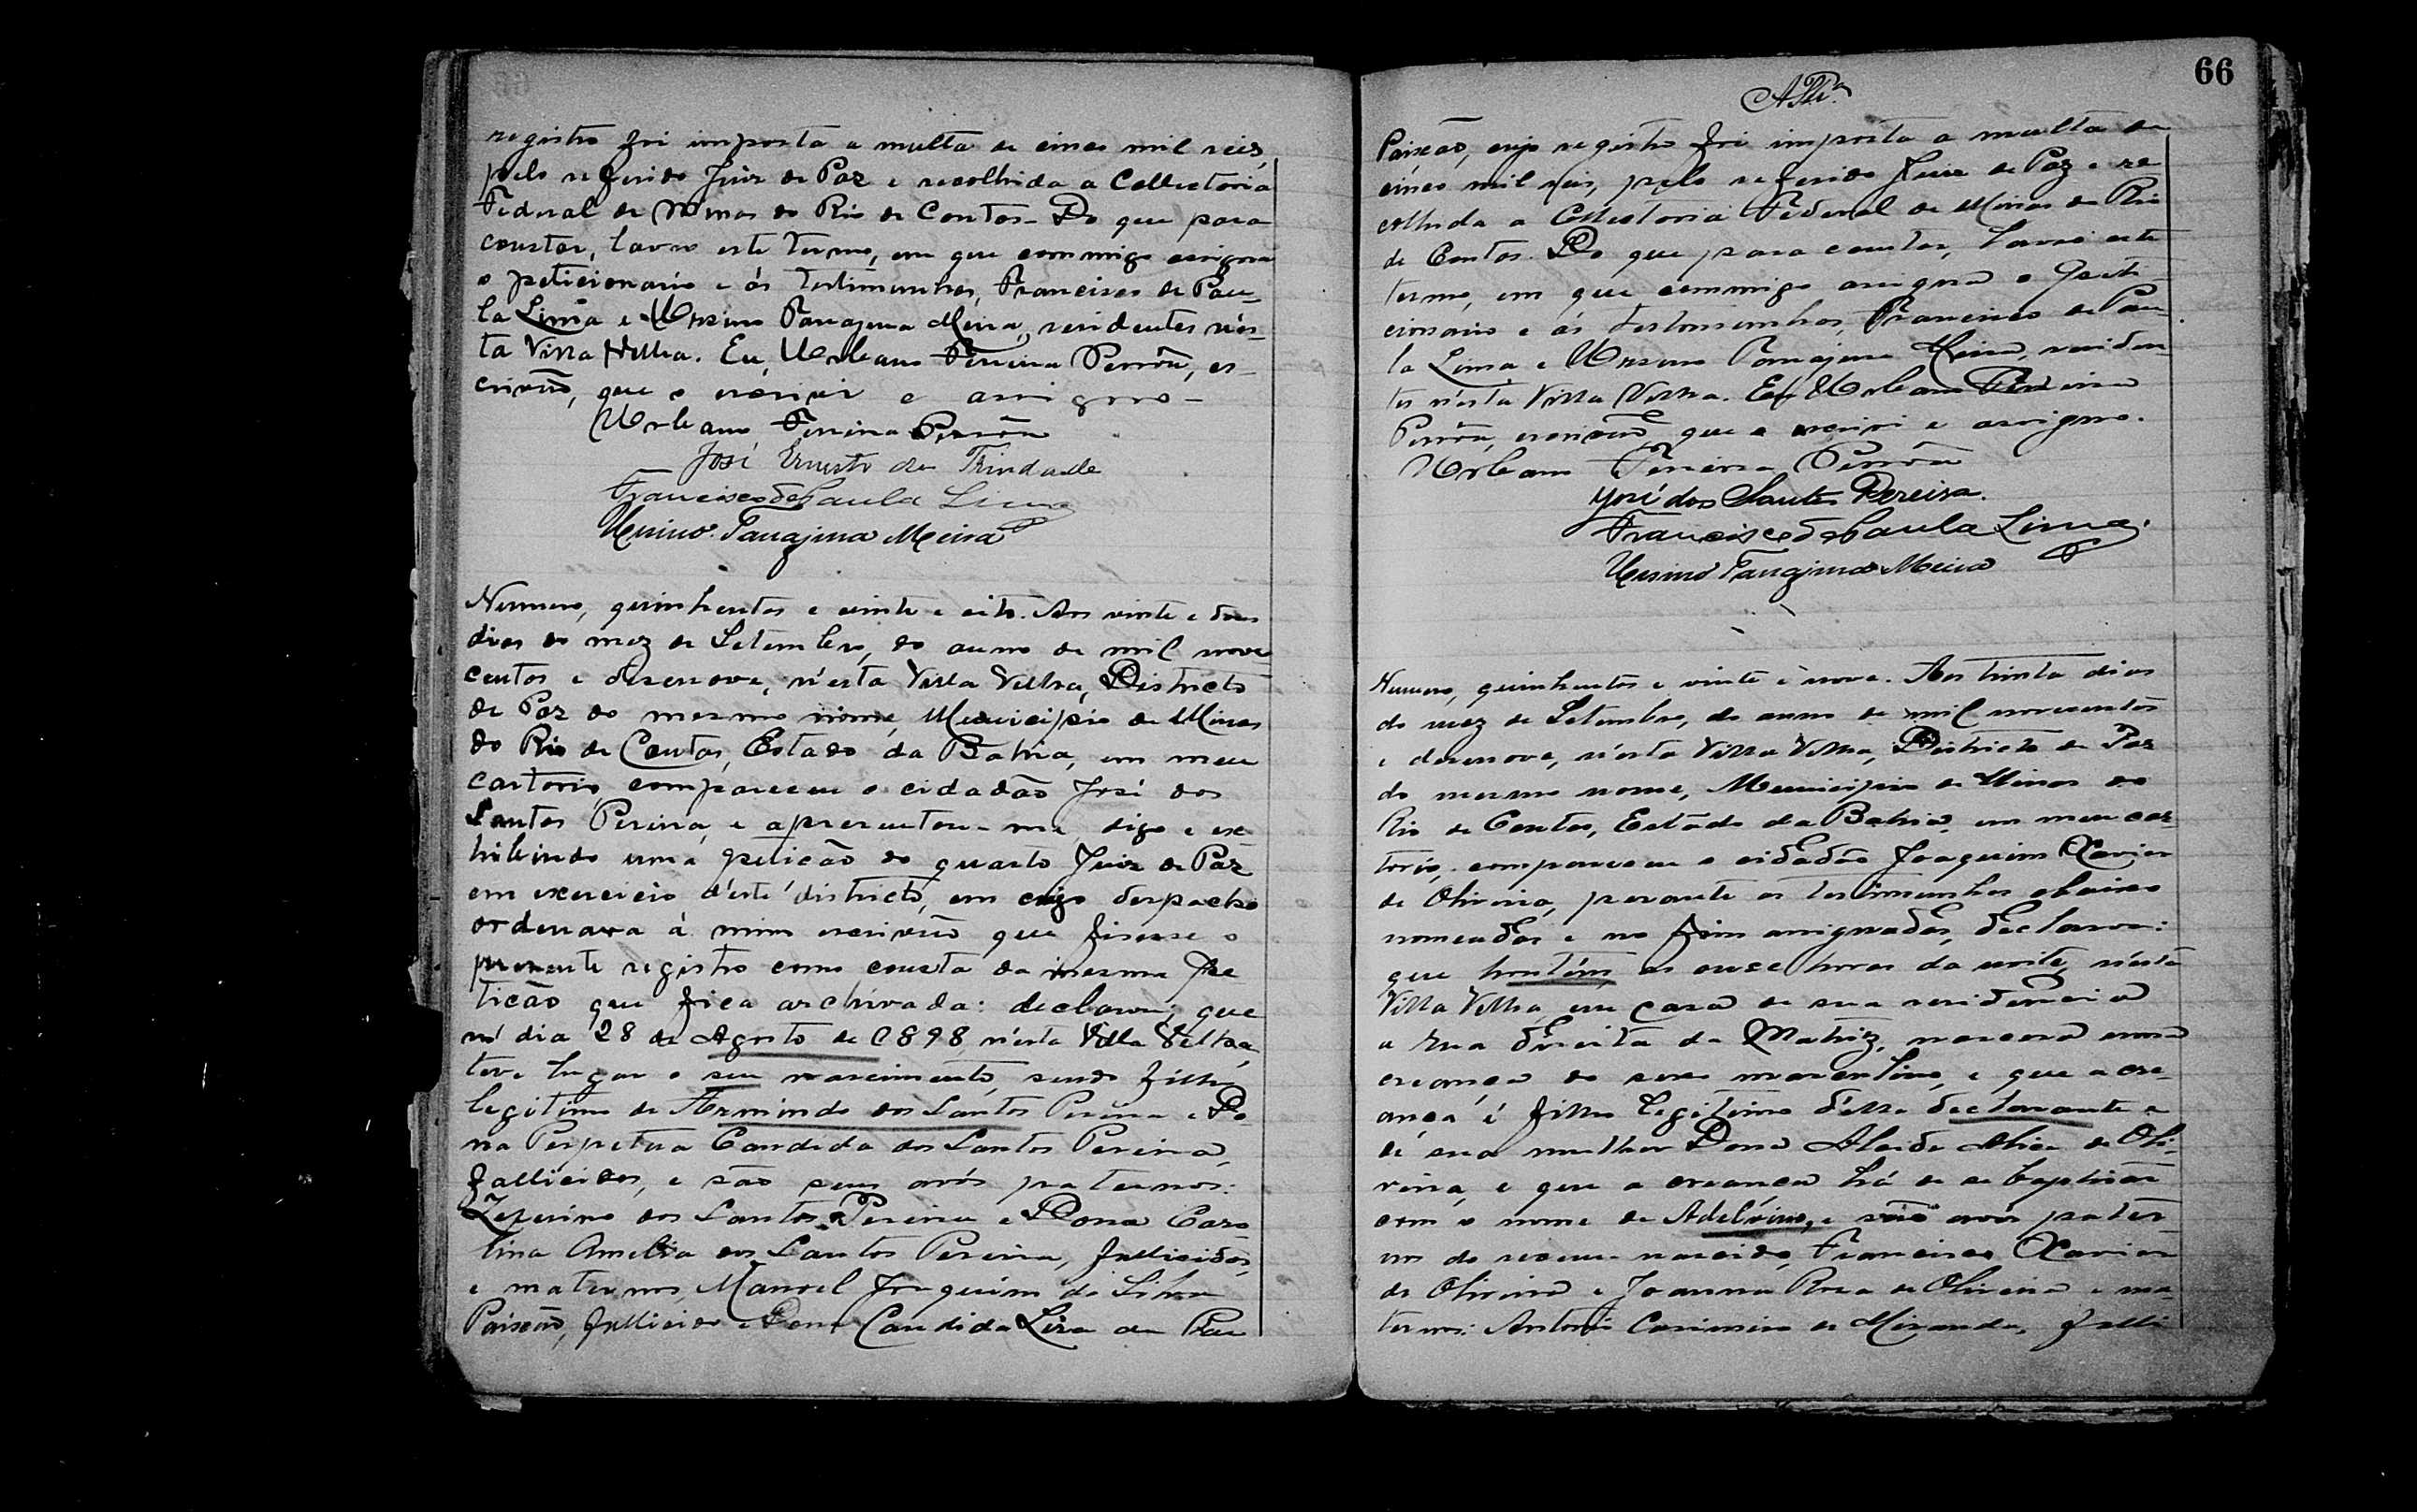 registro foi imposta a multa de cinco mil reis,
pelo referido Juiz de Paz e recolhida a Collectoria
Federal de Minas do Rio de Contas. Do que para
constar, lavro este termo, em que commigo assigna
o peticionario e ás testimunhas, Francisco de Pau-
la Lima e Ursino Tanajura Meira, residentes n'es-
ta Villa Velha. Eu, Urbano Ferreira Perrôn, es-
crivão, que o escrivi e assigno-
Urbano Ferreira Perrôn
José Ernesto da Trindade
Francisco de Paula Lima
Ursino Tanajura Meira
Numero, quinhentos e vinte e oito. Aos vinte e dous
dias do mez de Setembro, do anno de mil nove
centos e desenove, n'esta Villa Velha, Districto
de Paz do mesmo nome, Municipio de Minas
do Rio de Contas, Estado da Bahia, em meu
cartorio, compareceu o cidadão José dos
Santos Pereira, e apresentou-me, digo e ex-
hibindo uma petição do quarto Juiz de Paz
em exercicio d'este districto, em cujo despacho
ordenava á mim escrivão que fizesse o
presente registro como consta da mesma pe
tição que fica archivada: declarou; que
no dia 28 de Agosto de 1898, n'esta Villa Velha,
teve lugar o seu nascimento, sendo filho
legitimo de Hermindo dos Santos Pereira e Do
na Perpetua Candida dos Santos Pereira,
fallicidos, e são seus avós paternos:
Zeferino dos Santos Pereira e Dona Caro
lina Amelia dos Santos Pereira, fallicidos,
e maternos, Manoel Joaquim da Silva
Paixão, fallicido e Dona Candida Lira da Pai
66
Paixão, cujo registro foi imposta a multa de
cinco mil reis, pelo referido Juiz de Paz e re
colhida a Collectoria Federal de Minas do Rio
de Contas. Do que para constar, lavro este
termo, em que commigo assigna o peti
cionario e ás testimunhas, Francisco de Pau
la Lima e Ursino Tanajura Meira, residen
tes n'esta Villa Velha. Eu, Urbano Ferreira
Perrôn, escrivão, que o escrivi e assigno.
Urbano Ferreira Perrôn
José dos Santos Pereira.
Francisco de Paula Lima.
Ursino Tanajura Meira
Numero, quinhentos e vinte e nove. Aos trinta dias
do mez de Setembro, do anno de mil novecentos
e desenove, n'esta Villa Velha, Districto de Paz
do mesmo nome, Municipio de Minas do
Rio de Contas, Estado da Bahia, em meu car-
torio, compareceu o cidadão Joaquim Xavier
de Oliveira, perante as testimunhas abaixo
nomeadas e no fim assignadas, declarou:
que hontém, as onze horas da noite, n'esta
Villa Velha, em casa de sua residencia
a rua direita da Matriz, nascera uma
creança do sexo masculino, e que a cre-
ança é filho legitimo d'elle declarante e
de sua mulher Dona Alaide Alice de Oli-
veira, e que a creança há de se baptisar
com o nome de Adelvino, e são avós pater
nos do recem nascido, Francisco Xavier
de Oliveira e Joanna Rosa de Oliveira e ma-
ternos: Antonio Casimiro de Miranda, falli